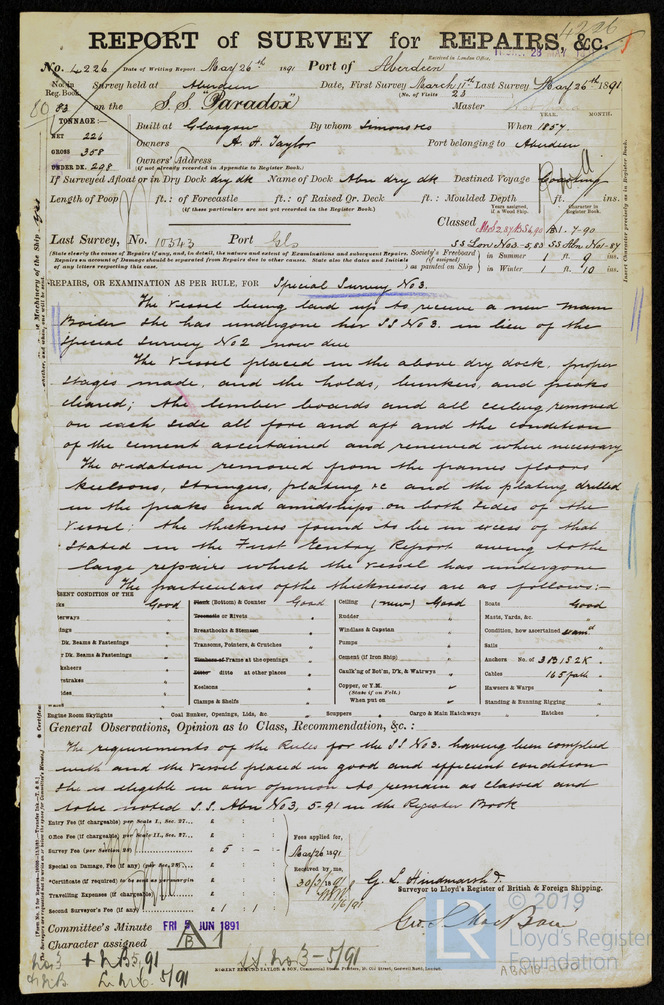 4226
REPORT of SURVEY for REPAIRS, &c.
Received in London Office,
No. 4226 Date of Writing Report May 26th 1891 Port of Aberdeen
No. in Reg. Book. Survey held at Aberdeen Date, First Survey March 11th Last Survey May 26th 1891
(No. of Visits 23
83 on the S.S. "Paradox" Master
TONNAGE:— Built at Glasgow By whom Simons & Co When 1857.
YEAR. MONTH.
NET 226 Owners A. H. Taylor Port belonging to Aberdeen
GROSS 358 Owners' Address
UNDER DK. 298 (if not already recorded in Appendix to Register Book.)
If Surveyed Afloat or in Dry Dock dry dk Name of Dock Abn dry dk Destined Voyage Coasting
Length of Poop ft.: of Forecastle ft.: of Raised Qr. Deck ft.: Moulded Depth ft. ins.
(if these particulars are not yet recorded in the Register Book.)
Years assigned, if a Wood Ship. Character in Register Book.
Classed B.1. 7-90
Last Survey, No. 10343 Port Gls SS Lon No3-5,83 SS Abn No1-87
(State clearly the cause of Repairs if any, and, in detail, the nature and extent of Examinations and subsequent Repairs. Repairs on account of Damage should be separated from Repairs due to other causes. State also the dates and Initials of any letters respecting this case.
Society's Freeboard (if assigned) as painted on Ship in Summer 1 ft. 9 ins.
in Winter 1 ft. 10 ins.
REPAIRS, OR EXAMINATION AS PER RULE, FOR Special Survey No 3.
The Vessel being laid up to receive a new Main
Boiler she has undergone her SS No 3. in lieu of the
Special Survey No 2 now due
The Vessel placed in the above dry dock, proper
stages made, and the holds, bunkers, and peaks
cleared; the limber boards and all ceiling removed
on each side all fore and aft and the condition
of the cement ascertained and renewed where necessary
The oxidation removed from the frames floors
keelsons, stringers, plating &c and the plating drilled
in the peaks and amidships on both sides of the
Vessel: the thickness found to be in excess of that
stated in the First Entry Report owing to the
large repairs which the Vessel has undergone
The particulars of the thicknesses are as follows:—
SENT CONDITION OF THE
Good Plank (Bottom) & Counter Good Ceiling (new) Good Boats Good
Treenails or Rivots " Rudder " Masts, Yards, &c. "
Breasthooks & Stemson " Windlass & Capstan " Condition, how ascertained
Dk. Beams & Fastenings " Transoms, Pointers, & Crutches " Pumps " Sails "
r Dk. Beams & Fastenings " Timbers of Frame at the openings " Cement (if Iron Ship) " Anchors No. of 3B 1S 2K.
Ditto ditto at other places " Caulk'ng of Bot'm, D'k, & Watrwys " Cables 165 fath
Keelsons " Copper, or Y.M. (State if on Felt.) " Hawsers & Warps "
Clamps & Shelfs " When put on " Standing & Running Rigging "
Engine Room Skylights " Coal Bunker, Openings, Lids, &c " Scuppers " Cargo & Main Hatchways " Hatches "
General Observations, Opinion as to Class, Recommendation, &c.:
The requirements of the Rules for the SS No3. having been complied
with and the Vessel placed in good and efficient condition
she is eligible in our opinion to remain as classed and
to be noted S.S. Abn No3, 5-91 in the Register Book
Entry Fee (if chargeable) per Scale I., Sec. 27... £ : :
Office Fee (if chargeable) per Scale II., Sec. 27... £ : :
Survey Fee (per Section 28) £ 5 : - : -
Special on Damage, Fee (if any) (per Sec. 28)... £ : :
Certificate (if required) to be sent as per margin £ : :
Travelling Expenses (if chargeable) £ : :
Second Surveyor's Fee (if any) £ 1 : 1 :
Fees applied for,
May 26 1891
Received by me,
30/5/1891
G. S. Hindmarsh &
Surveyor to Lloyd's Register of British & Foreign Shipping.
Committee's Minute FRI 5 JUN 1891
Character assigned B 1
+ NB 5,91
L.M.C. 5/91
S.S. No.3 - 5/91
ROBERT EDMUND TAYLOR & SON, Commercial Steam Printers, 19, Old Street, Goswell Road, London.
© 2019
LR
Lloyd's Register
Foundation